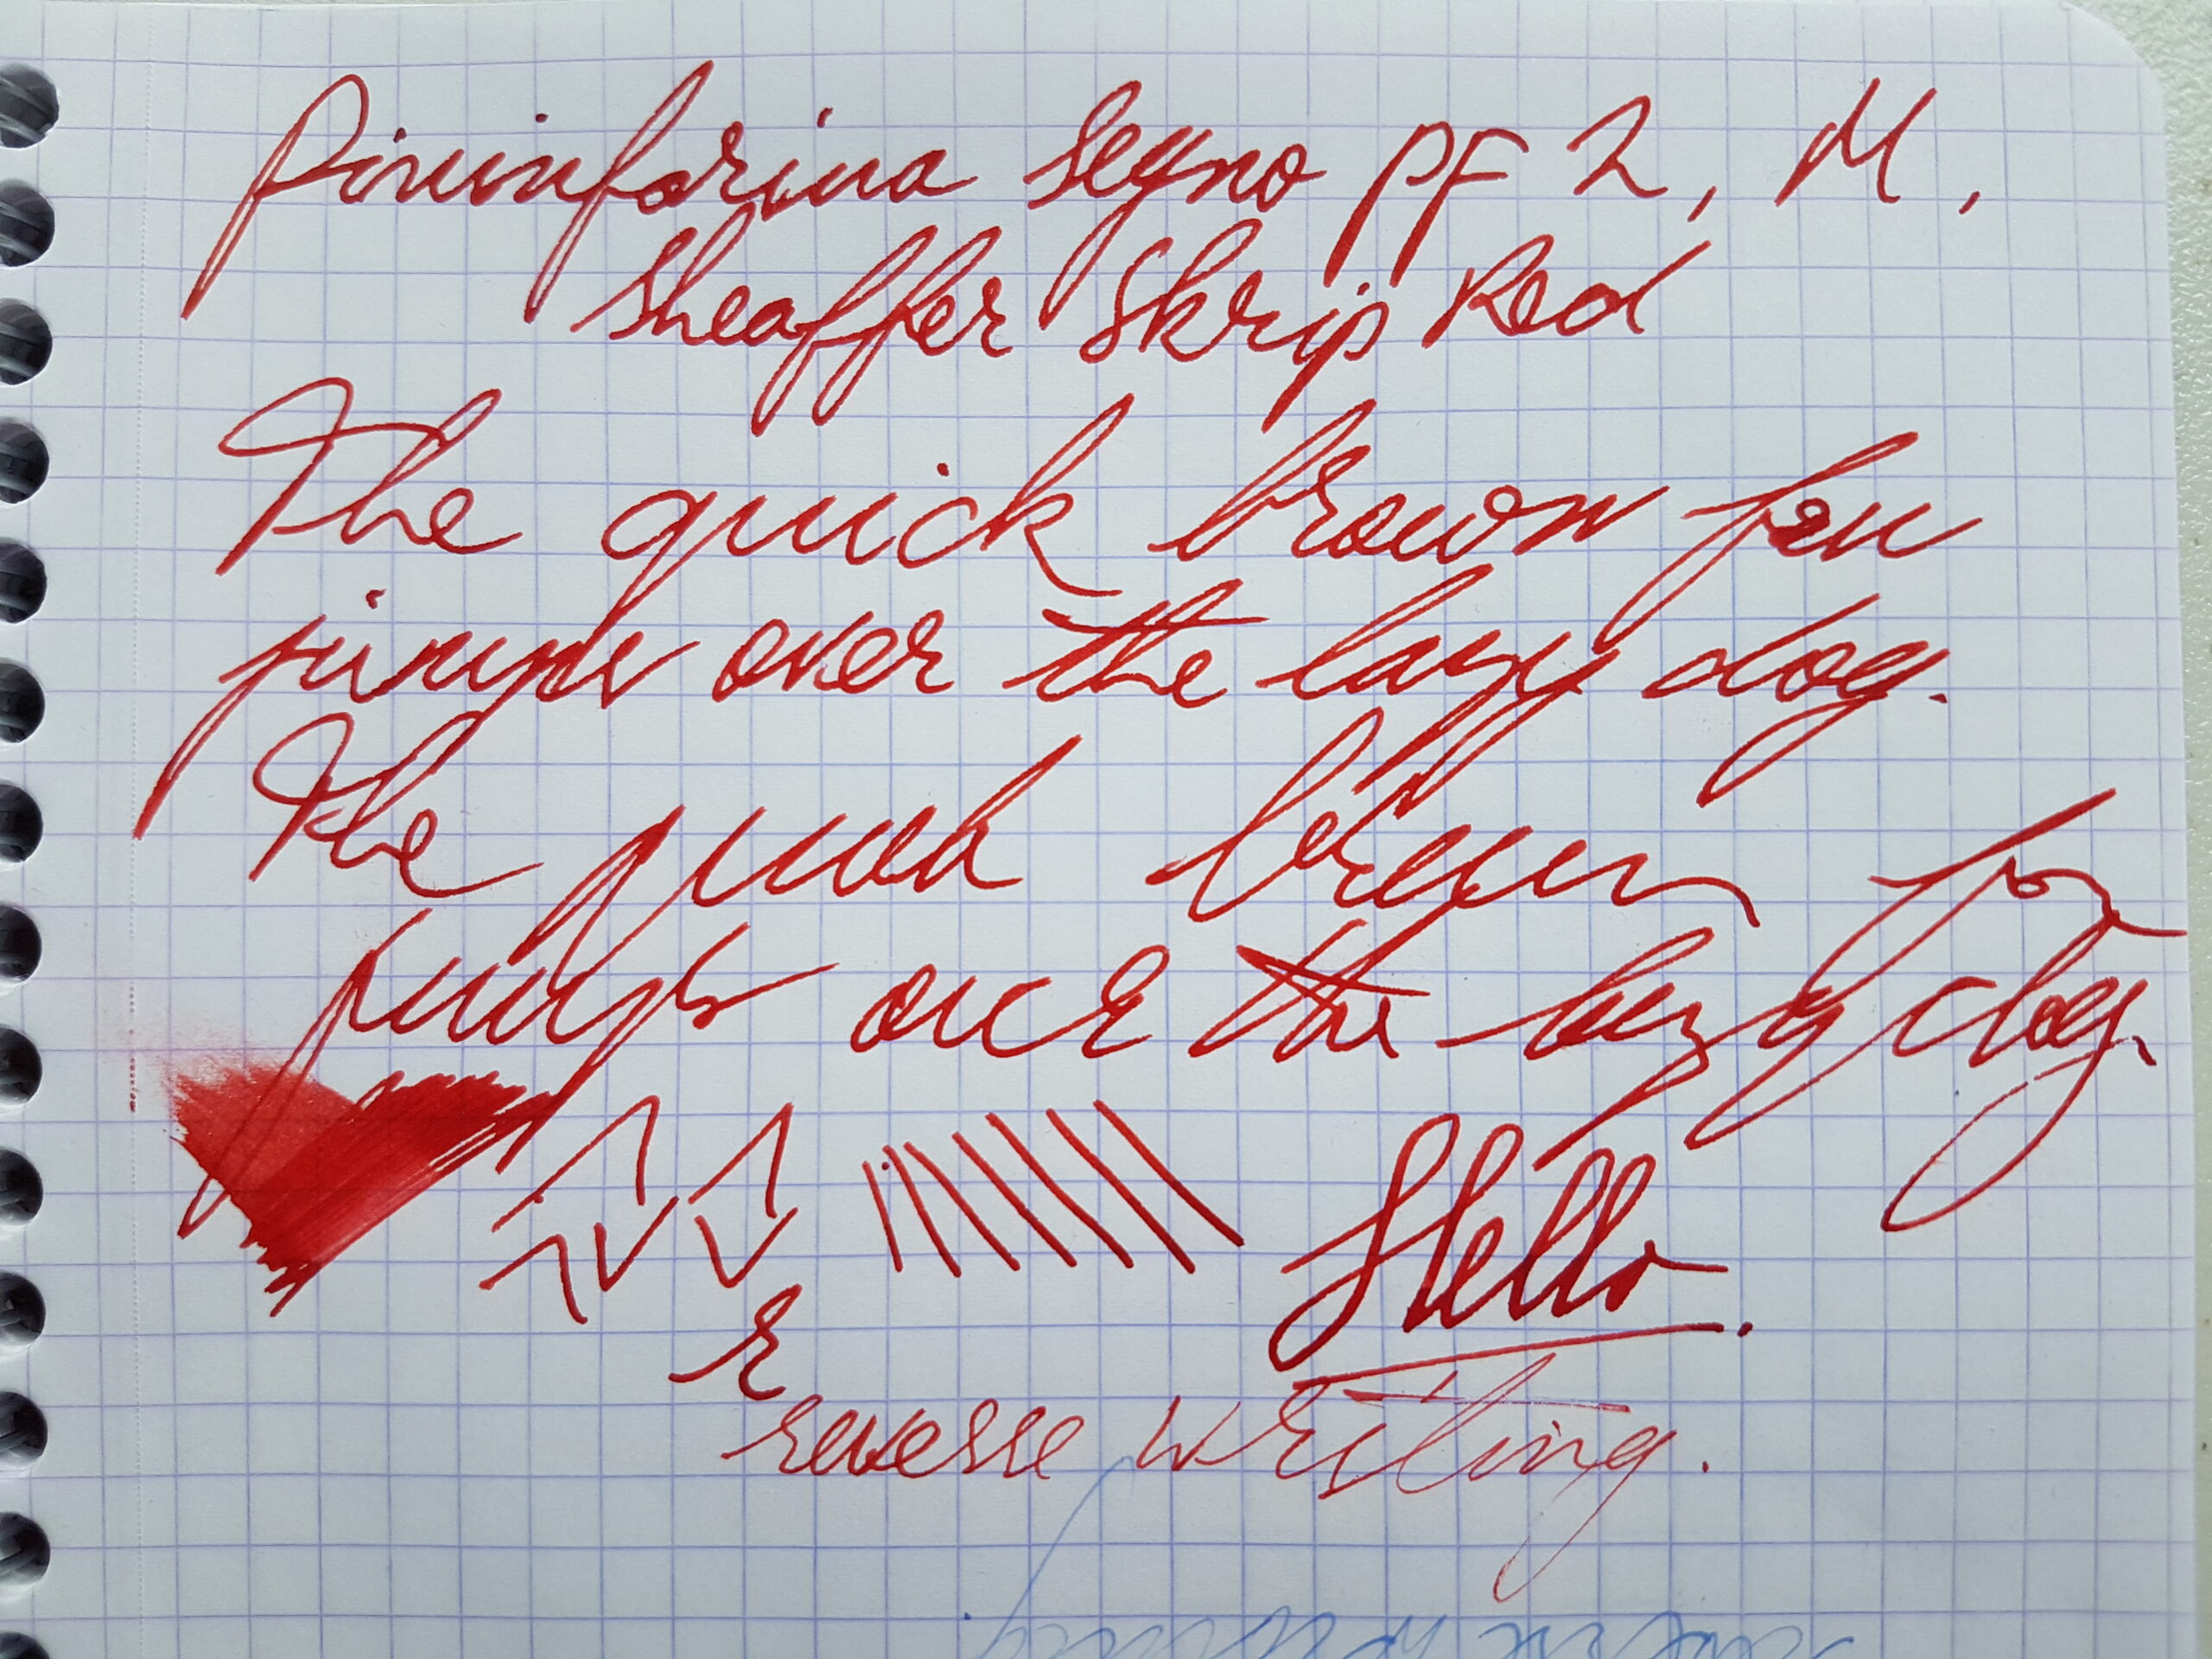 Pininfarina Segno PF 2, M,
Sheaffer Skrip Red
The quick brown fox
jumps over the lazy dog.
The quick brown fox
jumps over the lazy dog.
Hello.
r
reverse writing.